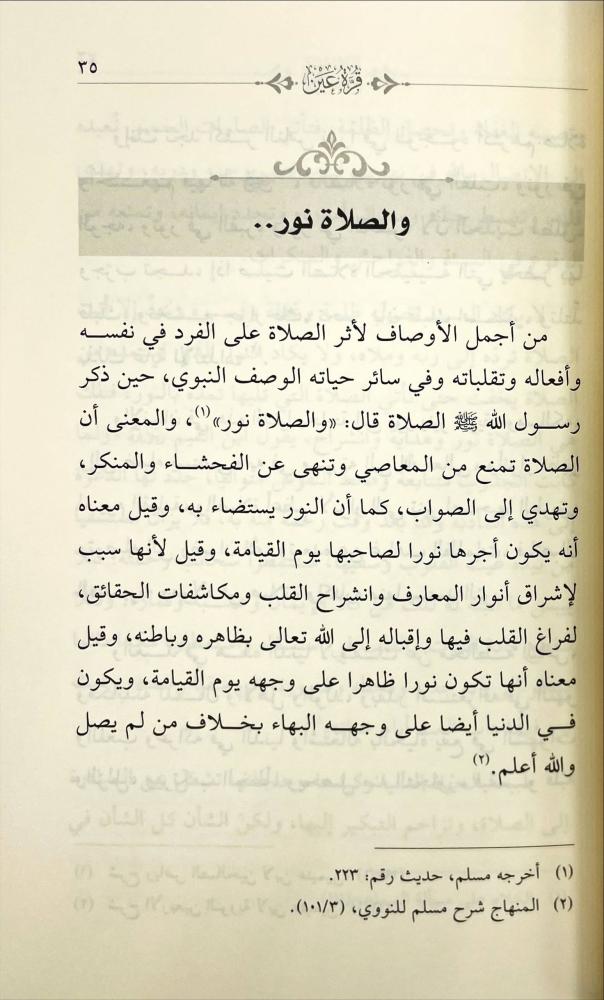 ٣٥
قُرَّةُ عَيْنٍ
والصلاة نور..
من أجمل الأوصاف لأثر الصلاة على الفرد في نفسه
وأفعاله وتقلباته وفي سائر حياته الوصف النبوي، حين ذكر
رسول الله ﷺ الصلاة قال: «والصلاة نور»(١)، والمعنى أن
الصلاة تمنع من المعاصي وتنهى عن الفحشاء والمنكر،
وتهدي إلى الصواب، كما أن النور يستضاء به، وقيل معناه
أنه يكون أجرها نورا لصاحبها يوم القيامة، وقيل لأنها سبب
لإشراق أنوار المعارف وانشراح القلب ومكاشفات الحقائق،
لفراغ القلب فيها وإقباله إلى الله تعالى بظاهره وباطنه، وقيل
معناه أنها تكون نورا ظاهرا على وجهه يوم القيامة، ويكون
في الدنيا أيضا على وجهه البهاء بخلاف من لم يصل
والله أعلم.(٢)
(١) أخرجه مسلم، حديث رقم: ٢٢٣.
(٢) المنهاج شرح مسلم للنووي، (١٠١/٣).